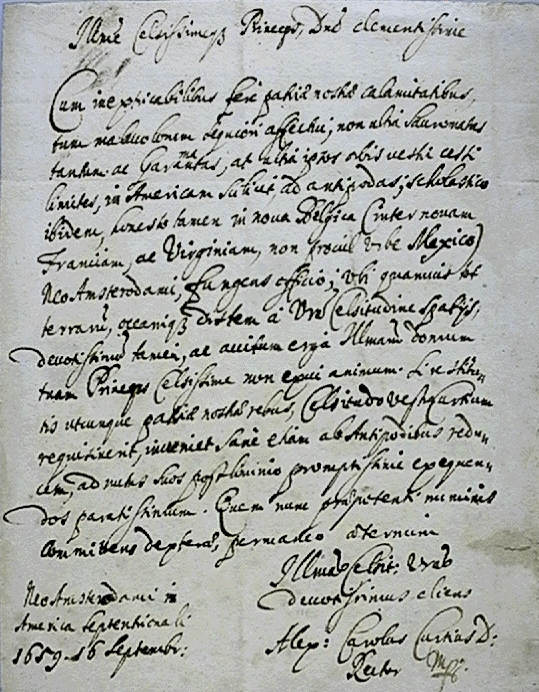 Illme Celsissimeqз Princeps, Dne clementissime
Cum inexplicabilibus fere patriæ nostræ calamitatibus,
tum malevolorum affectui, non ultra Sauromatas
tantum ac Garamantas, at ultra ipsos orbis vestri
limites, in Americam scilicet, ad antipodas; scholastico
ibidem, honesto tamen in nova Belgica (inter novam
Franciam, ac Virginiam, non procul urbe Mexico)
NeoAmsterodami, fungens officio; ubi quamvis tot
terrarū, oceaniqз distem a Vrā Celsitudine spatijs,
devotissimū tamen, ac avitum erga Illmam domum
tuam Princeps Celsissime non exui animum. Si restitu-
tis utcunque patriæ nostræ rebus, Celsitudo vestra Curtium
requisiverit, inveniet sane etiam ab Antipodibus redu-
cem, ad nutus suos postliminio promptissime exequen-
dos paratissimum. Quem nunc præpotenti numinis
committens dexteræ, permaneo æternum
Illmæ Celsit: Vræ
devotissimus cliens
Alex: Carolus Curtius D:
Rector
NeoAmsterodami in
America Septentrionali
1659 16 Septembr: